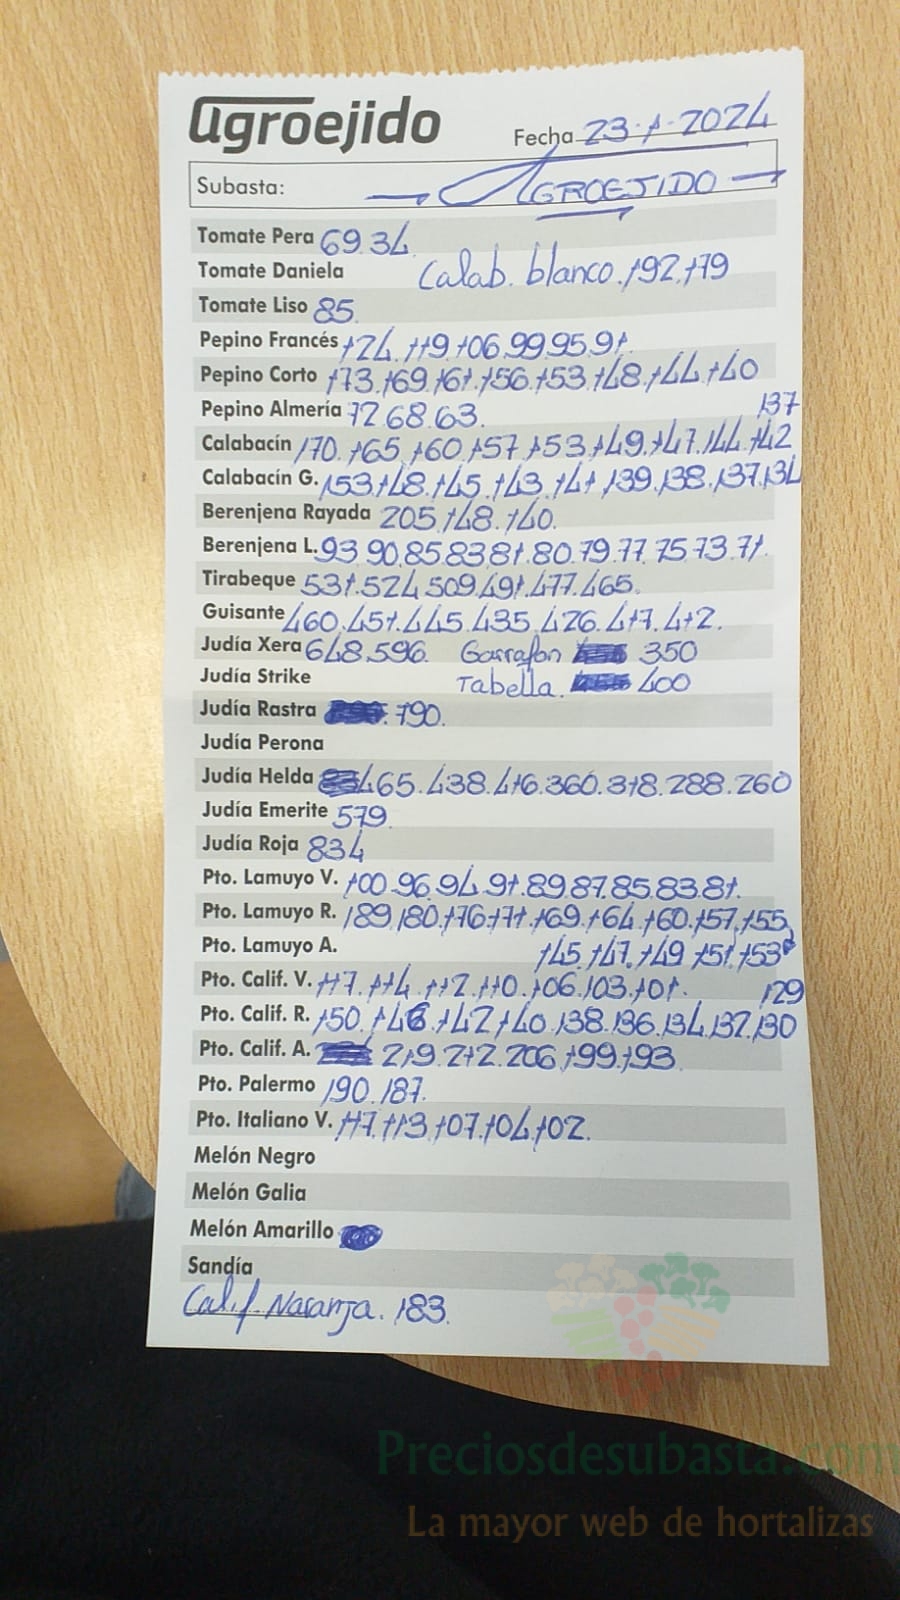 agroejido
Fecha 23-1-2024
Subasta: AGROEJIDO
Tomate Pera 69.34
Tomate Daniela Calab. blanco. 192.179
Tomate Liso 85
Pepino Francés 124. 119.106.99.95.91.
Pepino Corto 173.169.161.156.153.148.144.140
Pepino Almería 72.68.63.
137
Calabacín 170.165.160.157.153.149.147.144.142
Calabacín G. 153.148.145.143.141.139.138.137.134
Berenjena Rayada 205.148.140.
Berenjena L. 93.90.85.83.81.80.79.77.75.73.71.
Tirabeque 531.524.509.491.477.465.
Guisante 460.451.445.435.426.417.412.
Judía Xera 648.596. Garrafon 350
Judía Strike Tabella. 400
Judía Rastra 790.
Judía Perona
Judía Helda 465.438.416.360.318.288.260
Judía Emerite 579.
Judía Roja 834
Pto. Lamuyo V. 100.96.94.91.89.87.85.83.81.
Pto. Lamuyo R. 189.180.176.171.169.164.160.157.155
Pto. Lamuyo A. 145.147.149 151.153
Pto. Calif. V. 117.114.112.110.106.103.101.
129
Pto. Calif. R. 150.146.142.140.138.136.134.132.130
Pto. Calif. A. 219.212.206.199.193
Pto. Palermo 190.187.
Pto. Italiano V. 117.113.107.104.102.
Melón Negro
Melón Galia
Melón Amarillo
Sandía
Calif. Naranja. 183.
Preciosdesubasta.com
La mayor web de hortalizas